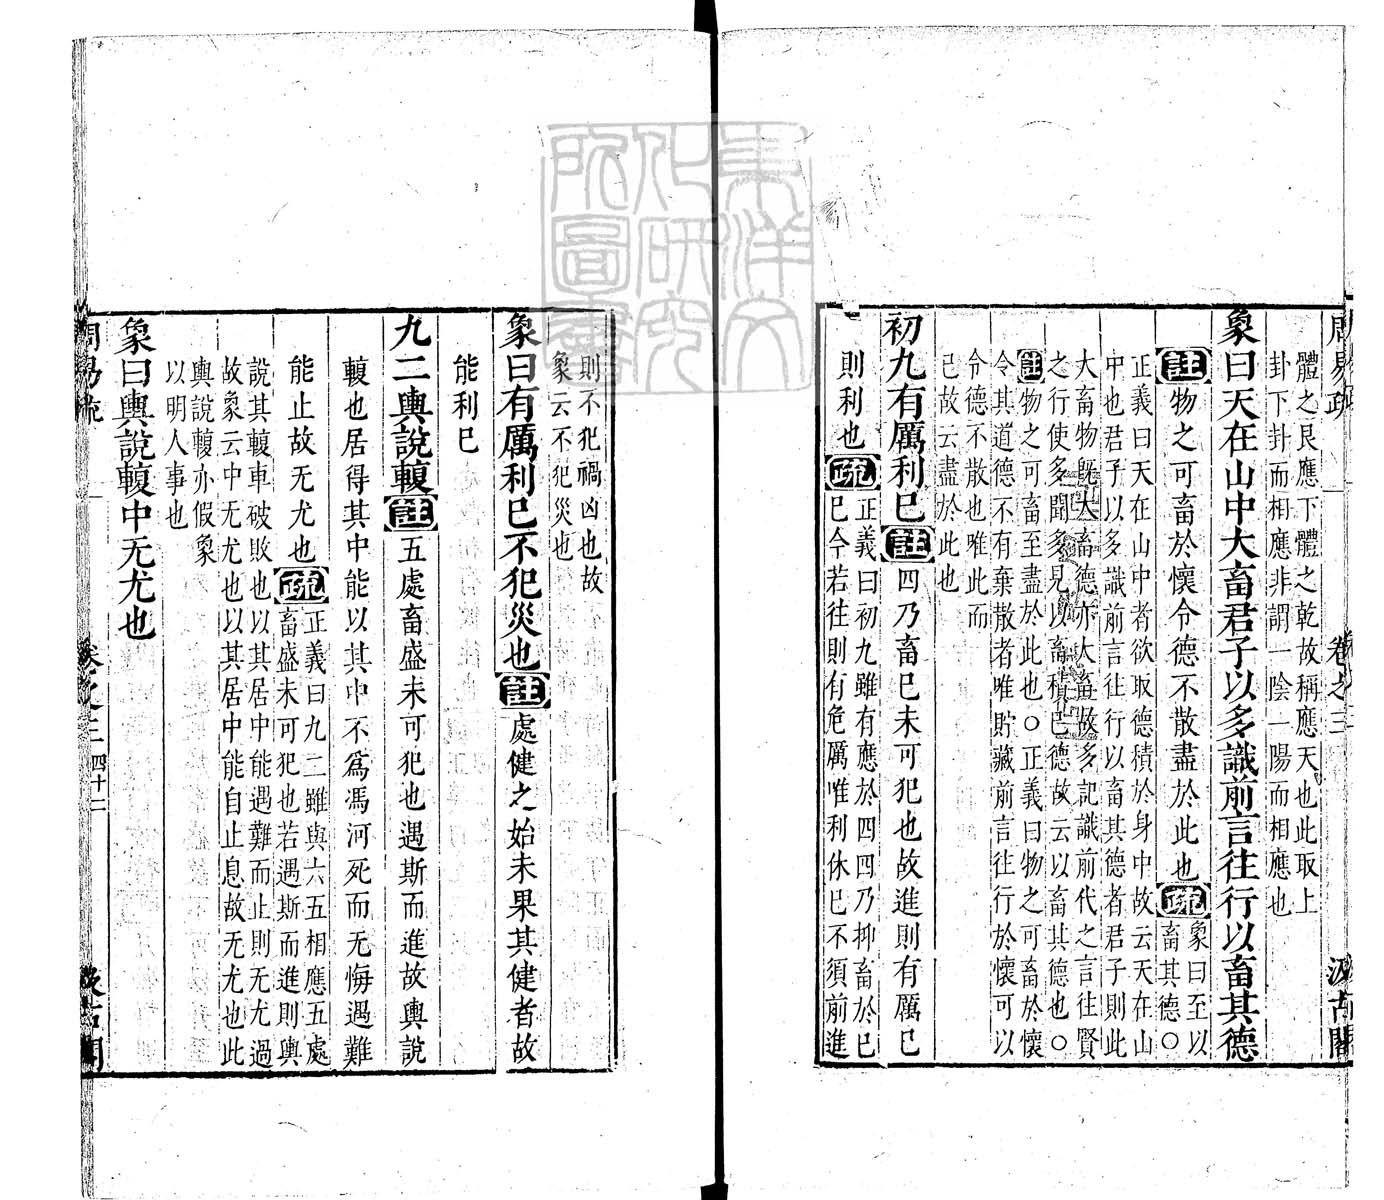 周易疏 卷之三 汲古閣
體之艮應下體之乾故稱應天也此取上
卦下卦而相應非謂一陰一陽而相應也
象曰天在山中大畜君子以多識前言往行以畜其德
註物之可畜於懷令德不散盡於此也疏
象曰至以
畜其德○
正義曰天在山中者欲取德積於身中故云天在山
中也君子以多識前言往行以畜其德者君子則此
大畜物既大畜德亦大畜故多記識前代之言往賢
之行使多聞多見以畜積已德故云以畜其德也○
註物之可畜至盡於此也○正義曰物之可畜於懷
令其道德不有棄散者唯貯藏前言往行於懷可以
令德不散也唯此而
已故云盡於此也
初九有厲利巳註四乃畜巳未可犯也故進則有厲巳
則利也疏
正義曰初九雖有應於四四乃抑畜於巳
巳今若往則有危厲唯利休巳不須前進
則不犯禍凶也故
象云不犯災也
象曰有厲利巳不犯災也註處健之始未果其健者故
能利巳
九二輿說輹註五處畜盛未可犯也遇斯而進故輿說
輹也居得其中能以其中不爲馮河死而无悔遇難
能止故无尤也疏
正義曰九二雖與六五相應五處
畜盛未可犯也若遇斯而進則輿
說其輹車破敗也以其居中能遇難而止則无尤過
故象云中无尤也以其居中能自止息故无尤也此
輿說輹亦假象
以明人事也
象曰輿說輹中无尤也
周易疏 卷之三 四十二 汲古閣
東洋文化研究所圖書